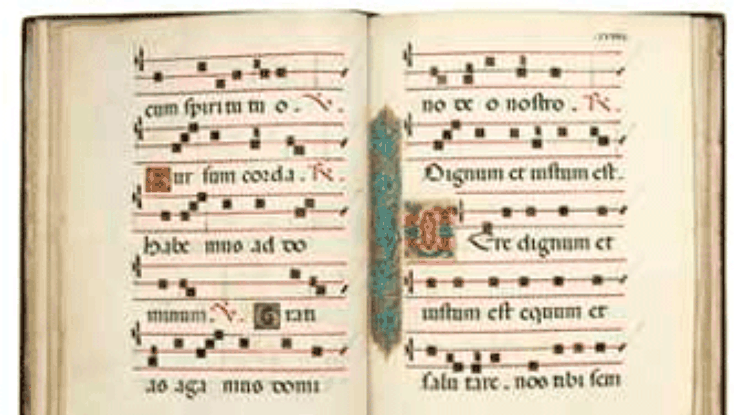 cum spiritu tu o. ℣.
Sur sum corda. ℟.
habe mus ad do
minum. ℣. Gran
as aga mus domi
no de o nostro. ℟.
Dignum et iustum est.
VEre dignum et
iustum est equum et
salu tare. nos tibi sem